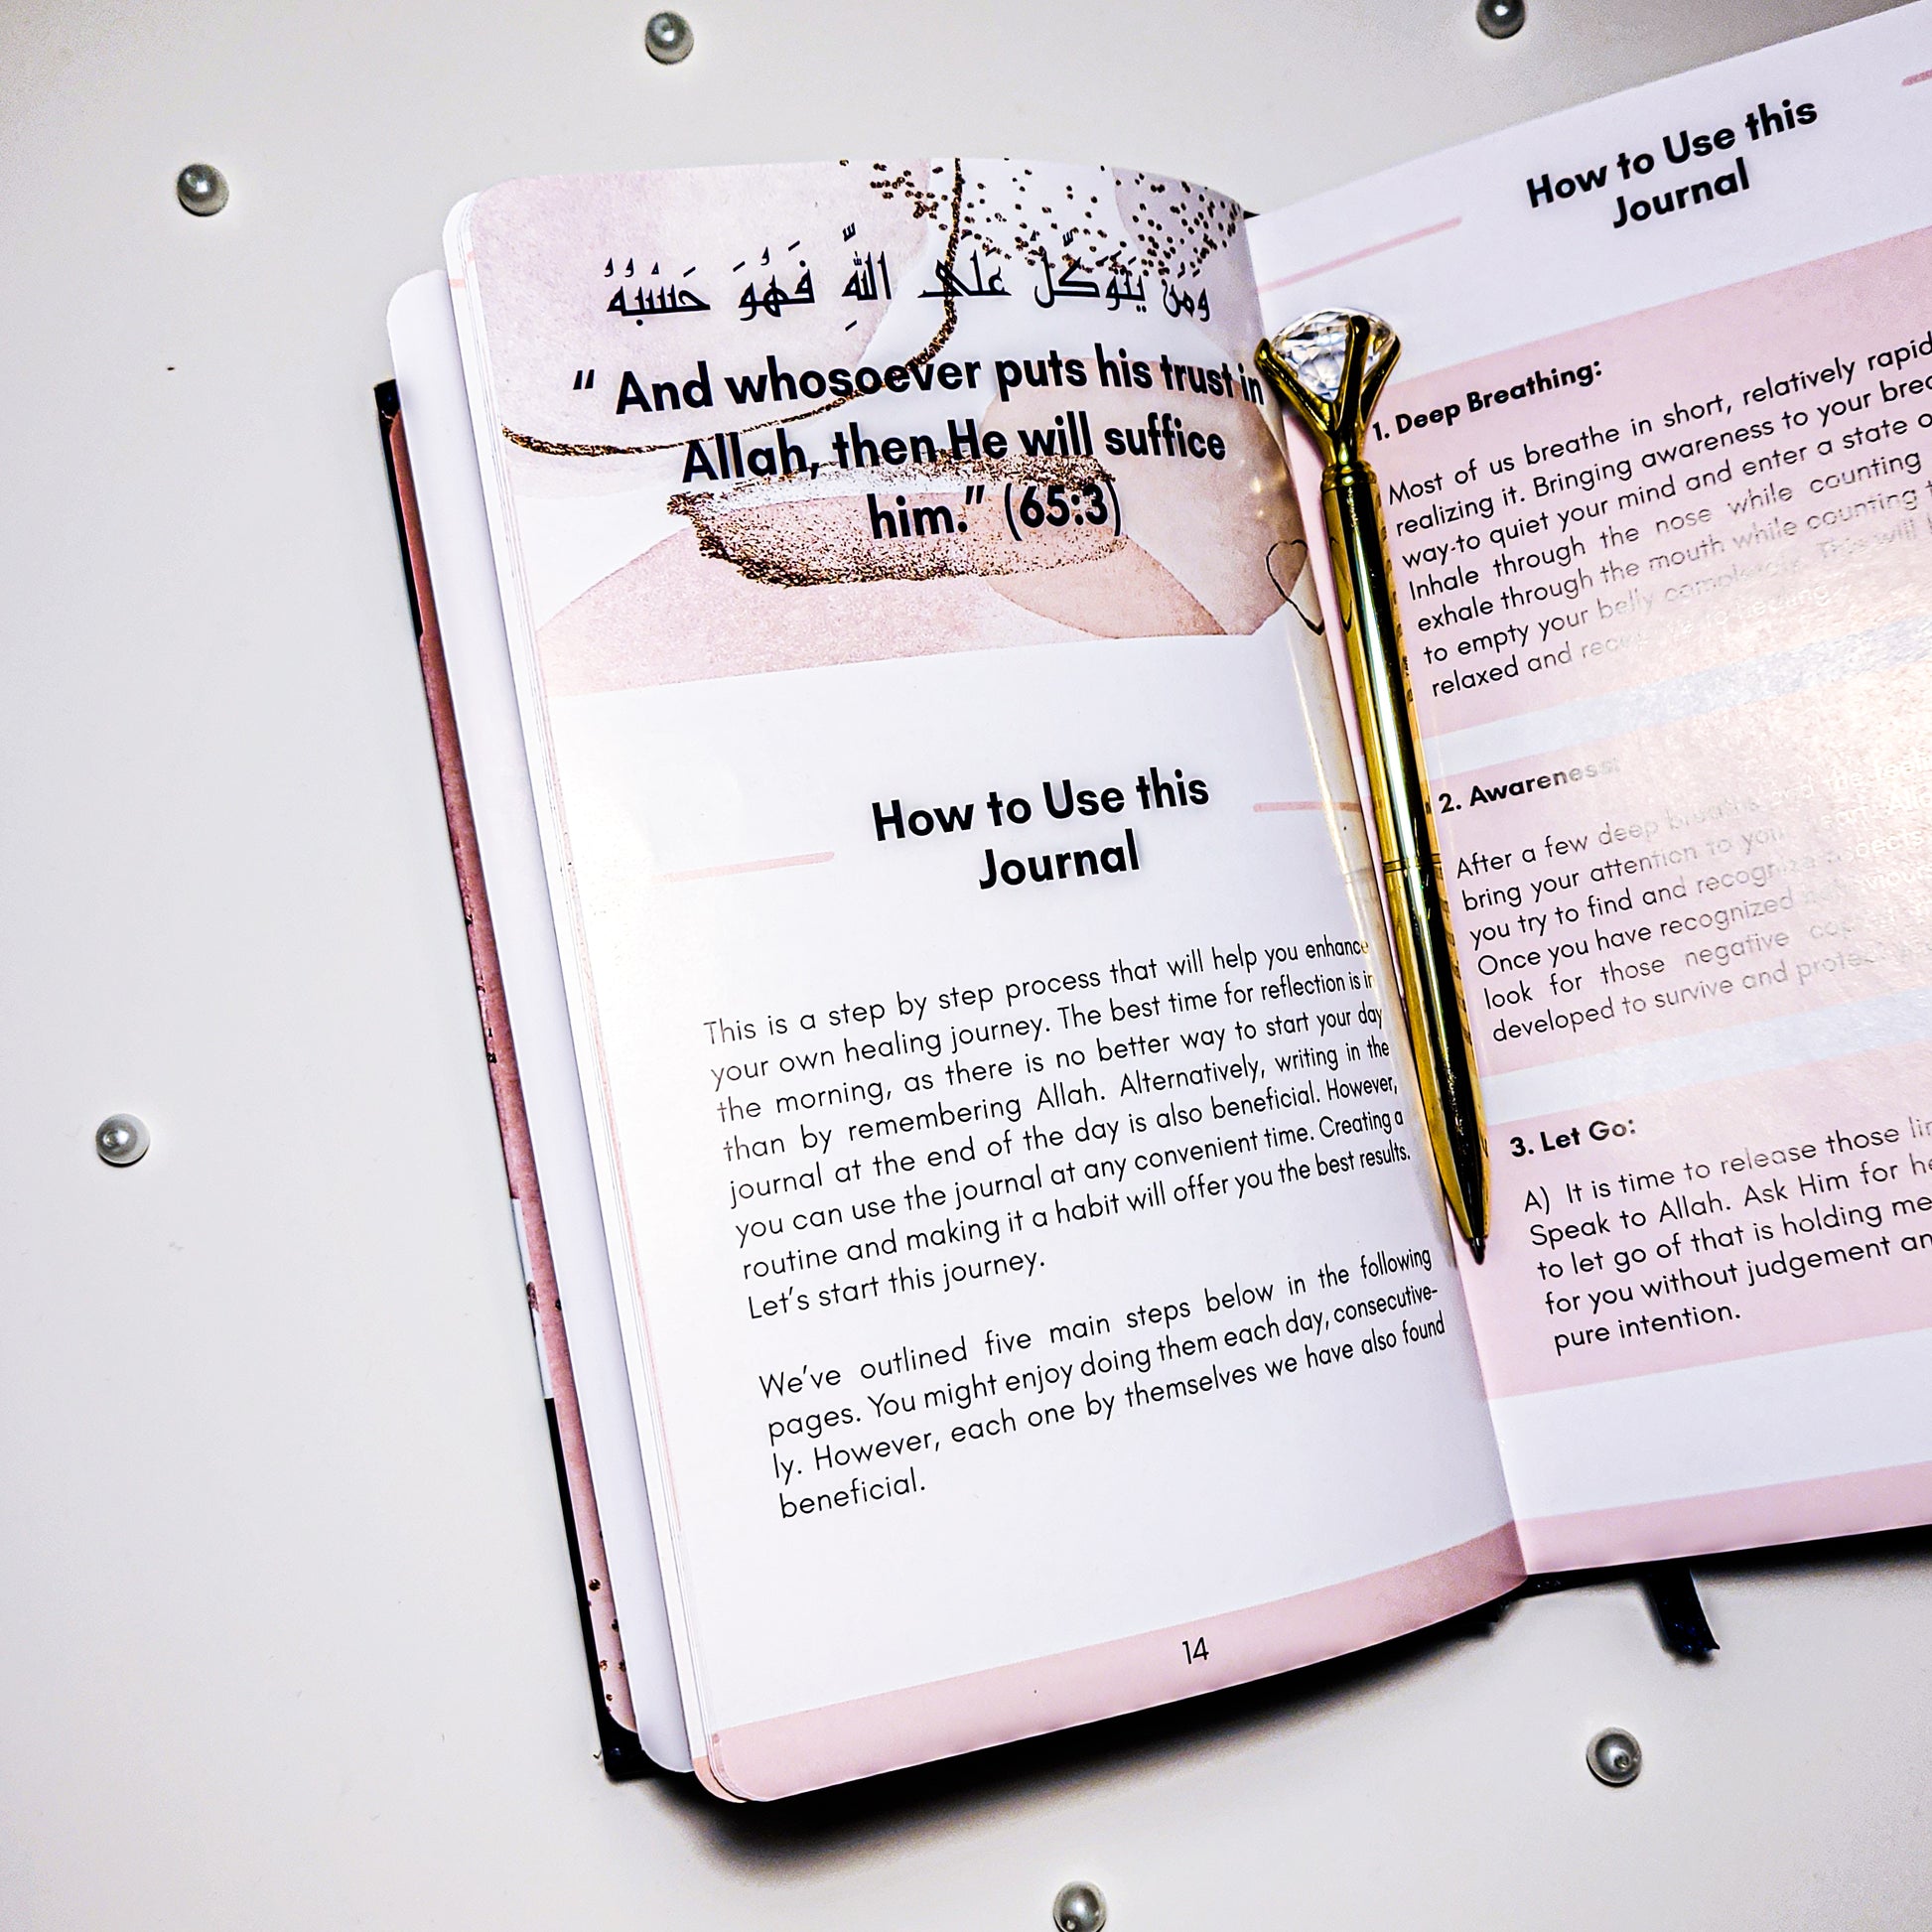 وَمَنْ يَتَوَكَّلْ عَلَى اللَّهِ فَهُوَ حَسْبُهُ
“ And whosoever puts his trust in
Allah, then He will suffice
him.” (65:3)
How to Use this
Journal
This is a step by step process that will help you enhance
your own healing journey. The best time for reflection is in
the morning, as there is no better way to start your day
than by remembering Allah. Alternatively, writing in the
journal at the end of the day is also beneficial. However,
you can use the journal at any convenient time. Creating a
routine and making it a habit will offer you the best results.
Let’s start this journey.
We’ve outlined five main steps below in the following
pages. You might enjoy doing them each day, consecutive-
ly. However, each one by themselves we have also found
beneficial.
14
How to Use this
Journal
1. Deep Breathing:
Most of us breathe in short, relatively rapid
realizing it. Bringing awareness to your
way-to quiet your mind and enter a state
Inhale through the nose while counting
exhale through the mouth while counting
to empty your belly completely. This will
relaxed and
2. Awareness:
After a few deep
bring your attention to
you try to find and recognize
Once you have recognized
look for those negative
developed to survive and
3. Let Go:
A) It is time to release those
Speak to Allah. Ask Him for
to let go of that is holding me
for you without judgement
pure intention.